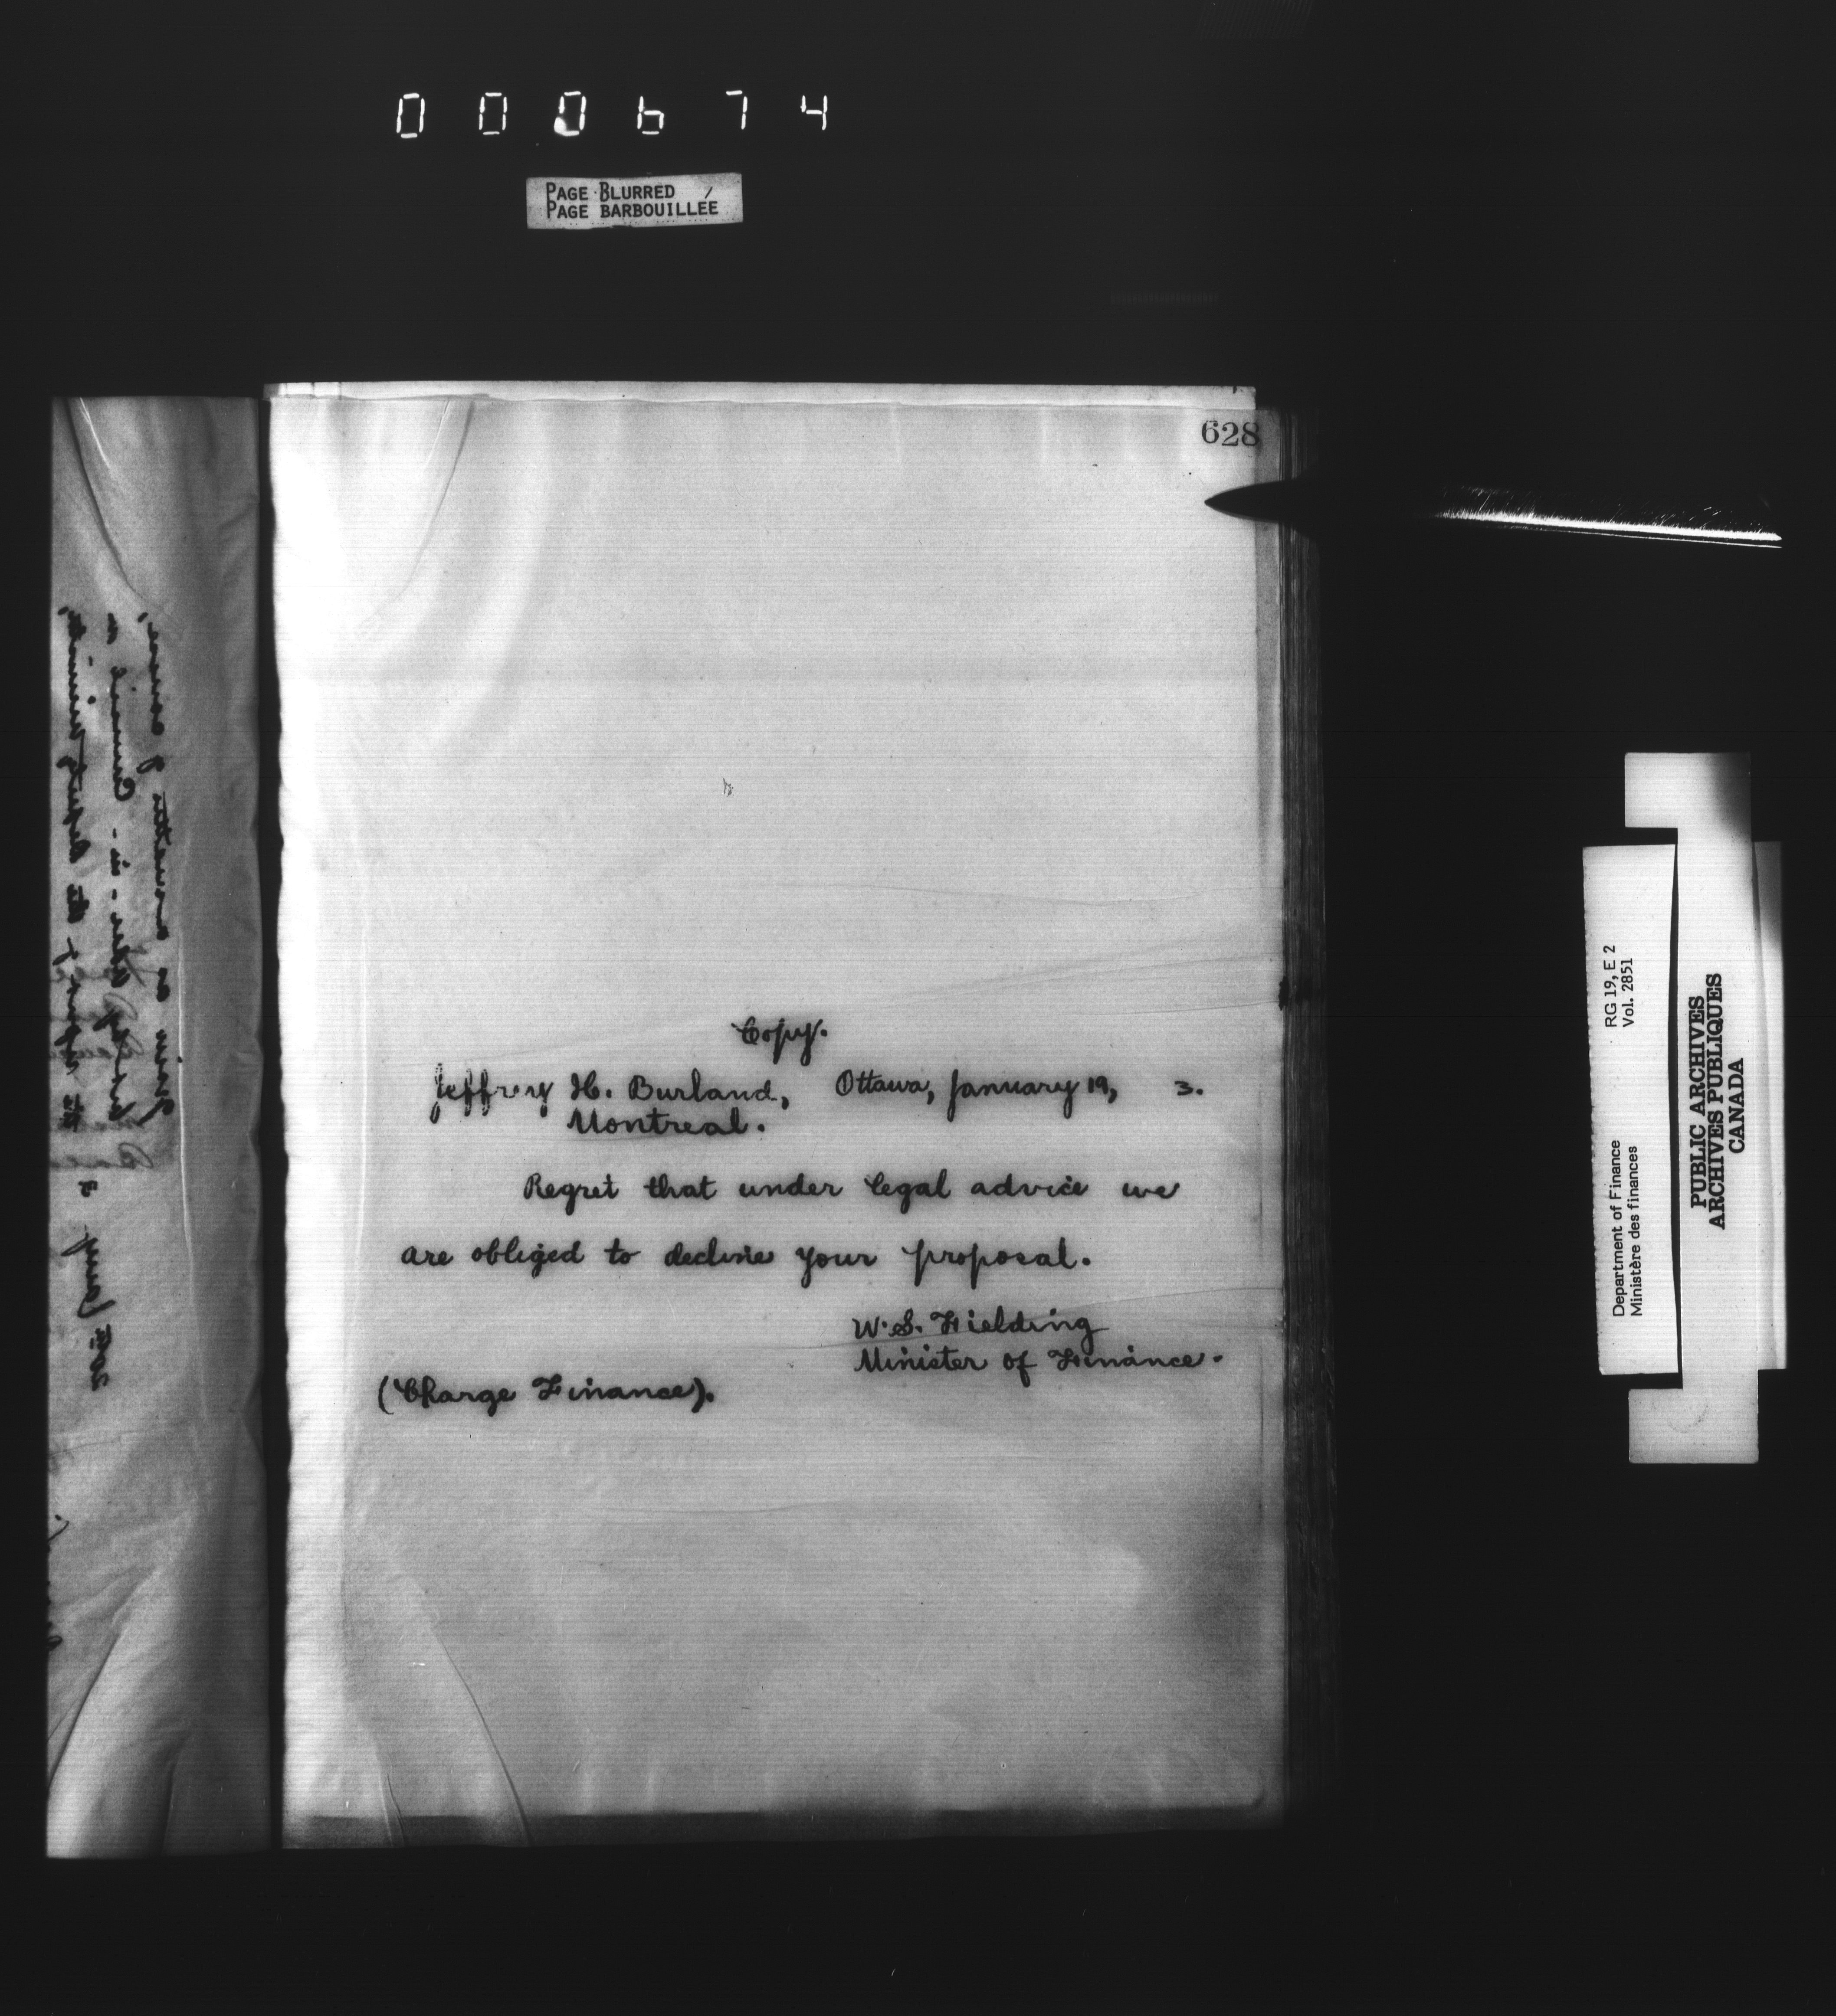 000674
PAGE BLURRED
PAGE BARBOUILLÉE
628
Copy.
Jeffrey H. Burland, Ottawa, January 19, 3.
Montreal.
Regret that under legal advice we
are obliged to decline your proposal.
W. S. Fielding
Minister of Finance.
(Charge Finance).
Department of Finance RG 19, E 2
Ministère des finances Vol. 2851
PUBLIC ARCHIVES
ARCHIVES PUBLIQUES
CANADA